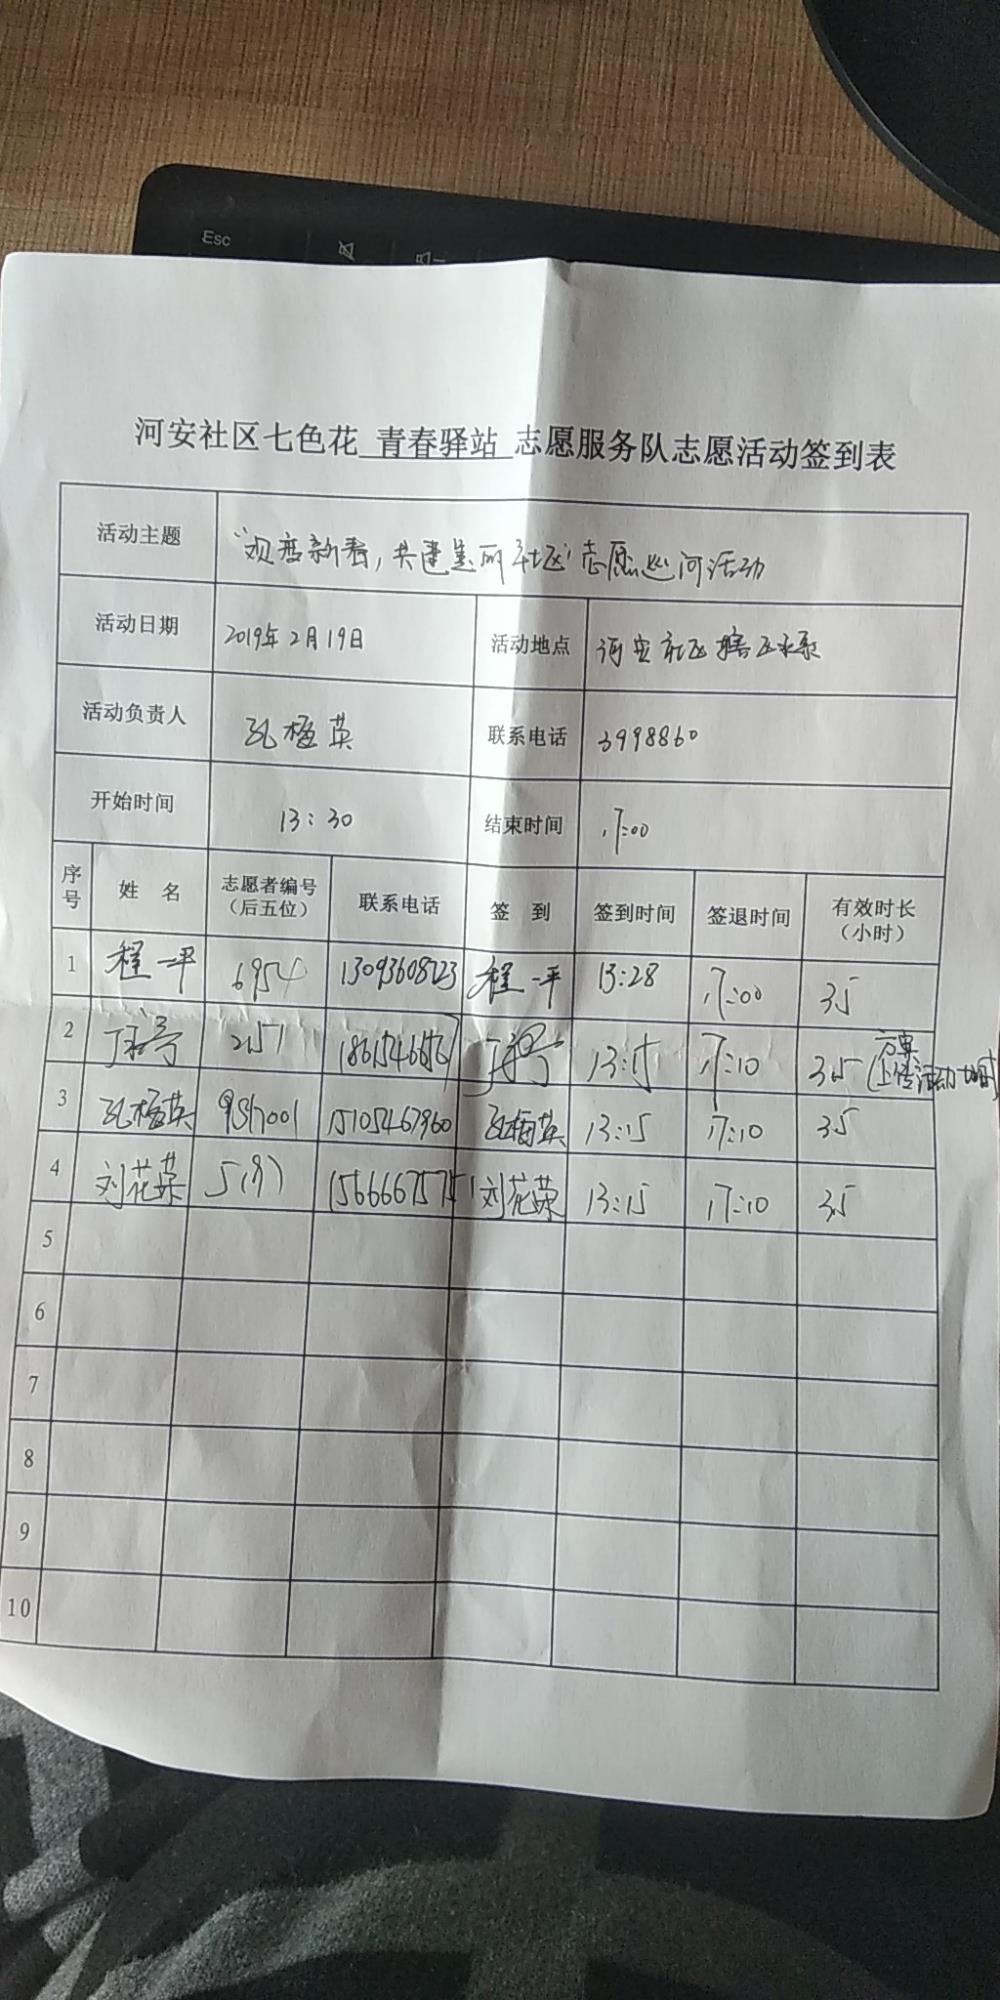 Esc
河安社区七色花 青春驿站 志愿服务队志愿活动签到表
活动主题 "欢度新春，共建美丽社区"志愿巡河活动
活动日期 2019年2月19日 活动地点 河安社区辖区水系
活动负责人 孔梅英 联系电话 3998860
开始时间 13:30 结束时间 17:00
序号 姓 名 志愿者编号（后五位） 联系电话 签 到 签到时间 签退时间 有效时长（小时）
1 程一平 6954 13093608723 程一平 13:28 17:00 3.5
2 2151 13:15 17:10 3.5
3 孔梅英 15105467960 孔梅英 13:15 17:10 3.5
4 刘花荣 刘花荣 13:15 17:10 3.5
5
6
7
8
9
10